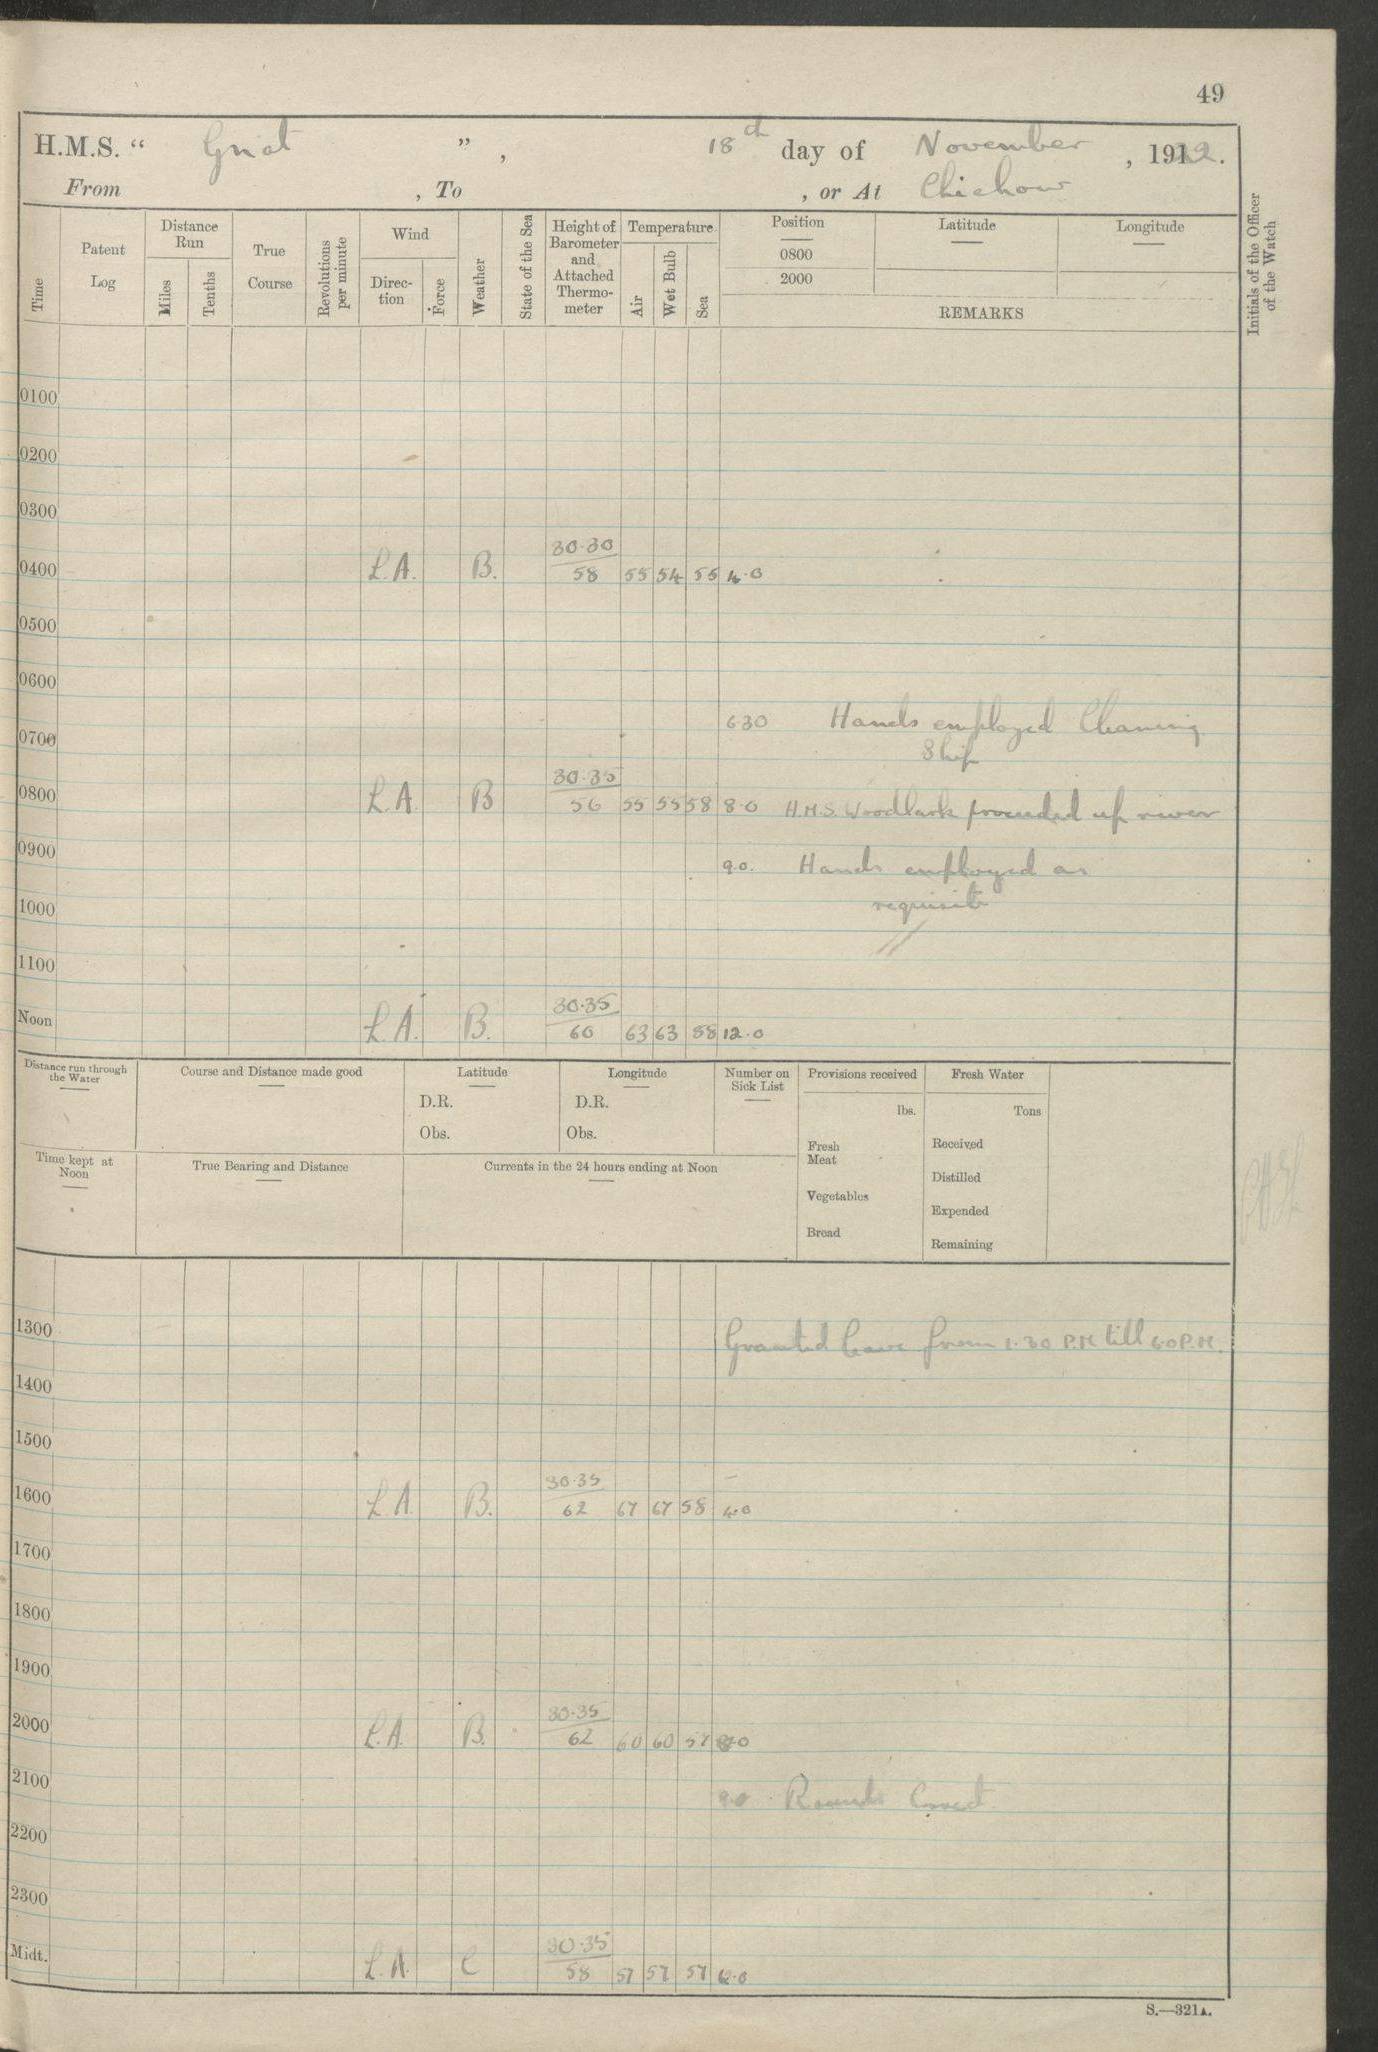 49
H.M.S. “ Gnat ” , 18th day of November , 1922.
From , To , or At Chichow
Time
Patent Log
Distance Run
Miles
Tenths
True Course
Revolutions per minute
Wind
Direction
Force
Weather
State of the Sea
Height of Barometer and Attached Thermometer
Temperature
Air
Wet Bulb
Sea
Position
0800
2000
Latitude
Longitude
REMARKS
Initials of the Officer of the Watch
0100
0200
0300
30.30
0400 L.A. B. 58 55 54 55 4.0
0500
0600
630 Hands employed Cleaning
0700
Ship
30.35
0800 L.A. B 56 55 55 58 8.0 H.M.S. Woodlark proceeded up river
0900
9.0. Hands employed as
1000 requisite
1100
30.35
Noon L.A. B. 60 63 63 58 12.0
Distance run through the Water
Course and Distance made good
Latitude
D.R.
Obs.
Longitude
D.R.
Obs.
Number on Sick List
Provisions received
lbs.
Fresh Meat
Vegetables
Bread
Fresh Water
Tons
Received
Distilled
Expended
Remaining
Time kept at Noon
True Bearing and Distance
Currents in the 24 hours ending at Noon
1300
Granted leave from 1.30 P.M till 6.0 P.M.
1400
1500
30.35
1600 L.A. B. 62 67 67 58 4.0
1700
1800
1900
30.35
2000 L.A. B. 62 60 60 57 8.0
2100
9.0 Rounds Correct
2200
2300
30.35
Midt. L.A. C 58 57 57 57 12.0
S.—321A.